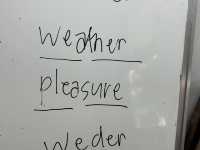 weather
pleasure
Weder